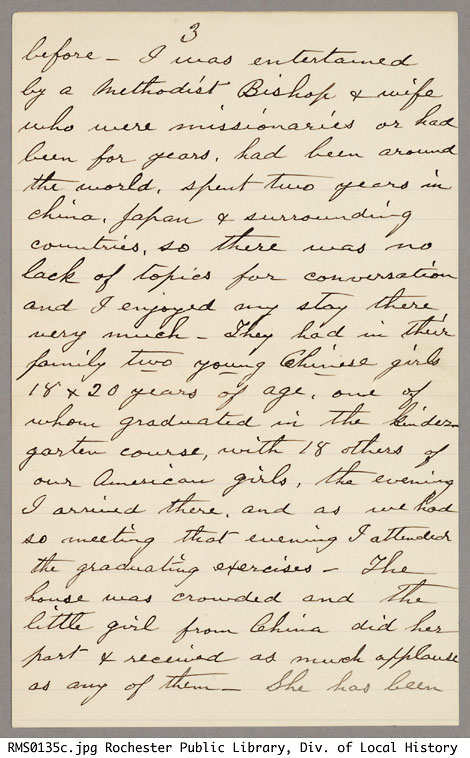 3
before - I was entertained
by a Methodist Bishop & wife
who were missionaries or had
been for years, had been around
the world, spent two years in
China, Japan & surrounding
countries, so there was no
lack of topics for conversation
and I enjoyed my stay there
very much - They had in their
family two young Chinese girls
18 & 20 years of age, one of
whom graduated in the kinder-
garten course, with 18 others of
our American girls, the evening
I arrived there, and as we had
so meeting that evening I attended
the graduating exercises - The
house was crowded and the
little girl from China did her
part & received as much applause
as any of them - She has been
RMS0135c.jpg Rochester Public Library, Div. of Local History